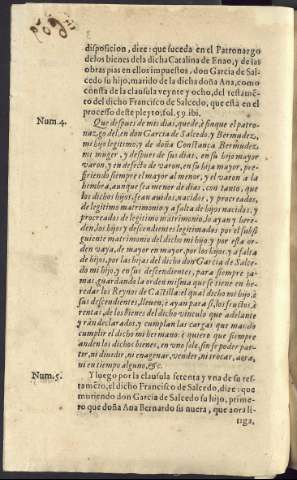 disposicion, dize: que suceda en el Patronazgo
de los bienes de la dicha Catalina de Enao, y de las
obras pias en ellos impuestos, don Garcia de Sal-
cedo su hijo, marido de la dicha doña Ana, como
consta de la clausula veynte y ocho, del testamẽ-
to del dicho Francisco de Salcedo, que està en el
processo deste pleyto, fol. 59. ibi.
Num. 4.
Que despues de mis dias, quede, à finque el patro-
nazgo del, en don Garcia de Salcedo, y Bermudez,
mi hijo legitimo, y de doña Constança Bermudez,
mi muger, y despues de sus dias, en su hijo mayor
varon, y en defecto de varon, en su hija mayor, pre-
firiendo siempre el mayor al menor, y el varon a la
hembra, aunque sea menor de dias, con tanto, que
los dichos hijos, sean auidos, nacidos, y procreados,
de legitimo matrimonio, y a falta de hijos nacidos, y
procreados de legitimo matrimonio, lo ayan, y here-
den, los hijos, y descendientes legitimados, por el subsi-
guiente matrimonio del dicho mi hijo, y por essa or-
den vaya, de mayor en mayor, por los hijos, y a falta
de hijos, por las hijas del dicho don Garcia de Salce-
do mi hijo, y en sus descendientes, para siempre ja-
mas, guardando la orden misma que se tiene en he-
redar los Reynos de Castilla: el qual dicho mi hijo, è
sus descendientes, lleuen, è ayan para si, los frutos, è
rentas, de los bienes del dicho vinculo que adelante
yràn declarados, y cumplan las cargas que mando
cumplir el dicho mi hermano: è quiere que siempre
anden los dichos bienes, en vno solo, sin se poder par-
tir, ni diuidir, ni enagenar, vender, ni trocar, aora,
ni en tiempo alguno, &c.
Num. 5.
Y luego por la clausula setenta y vna de su tes-
tamẽto, el dicho Francisco de Salcedo, dize: que
muriendo don Garcia de Salcedo su hijo, prime-
ro que doña Ana Bernardo su nuera, que aora li-
tiga,